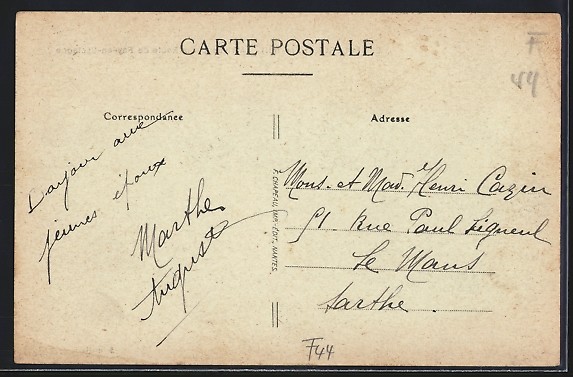 CARTE POSTALE
Correspondance
Adresse
Bonjour aux
jeunes époux
Marthe
Auguste
F. CHAPEAU, IMP.-EDIT., NANTES.
Mons. et Mad. Henri Cazin
91 Rue Paul Ligneul
Le Mans
Sarthe
F
44
F44